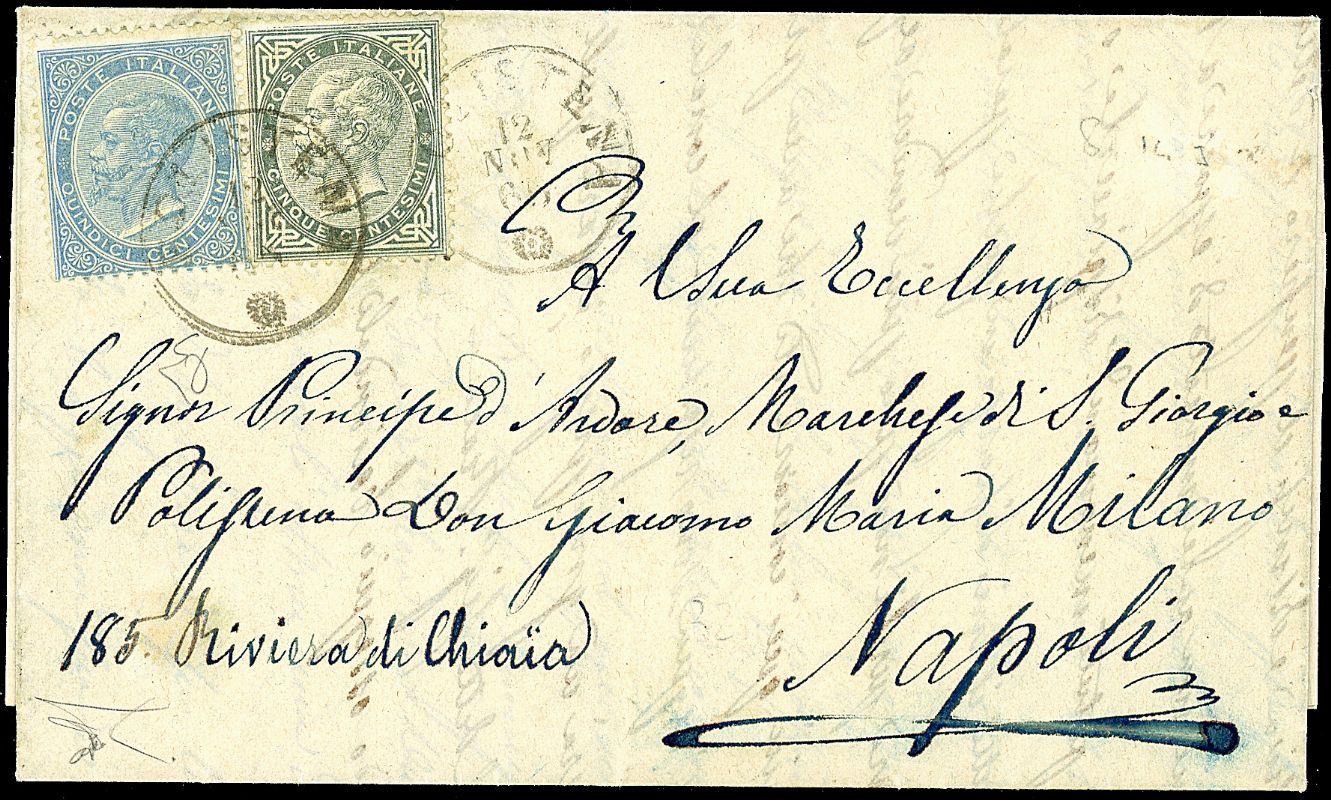 POSTE ITALIANE
QUINDICI CENTESIMI
POSTE ITALIANE
CINQUE CENTESIMI
12
NOV
A Sua Eccellenza
Signor Principe d'Ardore, Marchese di S. Giorgio e
Polistena Don Giacomo Maria Milano
185. Riviera di Chiaïa
Napoli